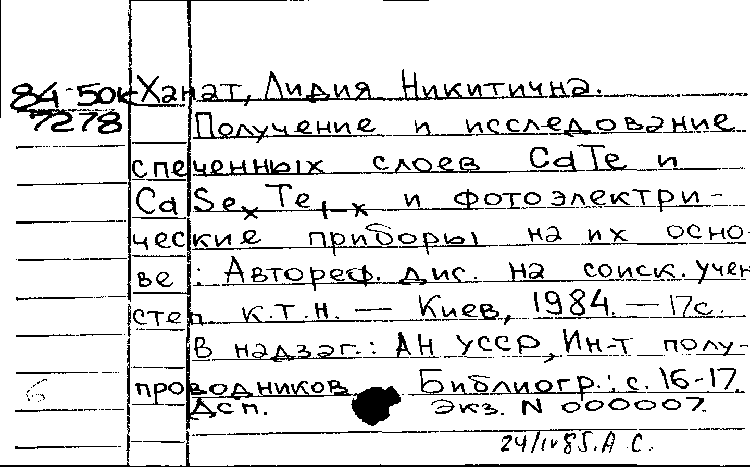 84-50к Ханат, Лидия Никитична.
7278 Получение и исследование
спеченных слоев CdTe и
CdSexTe1-x и фотоэлектри-
ческие приборы на их осно-
ве : Автореф. дис. на соиск. учен
степ к.т.н. — Киев, 1984. — 17с.
В надзаг.: АН УССР, Ин-т полу-
6 проводников Библиогр.: с. 16-17.
Дсп. Экз. N 000007.
24/IV 85. А С.